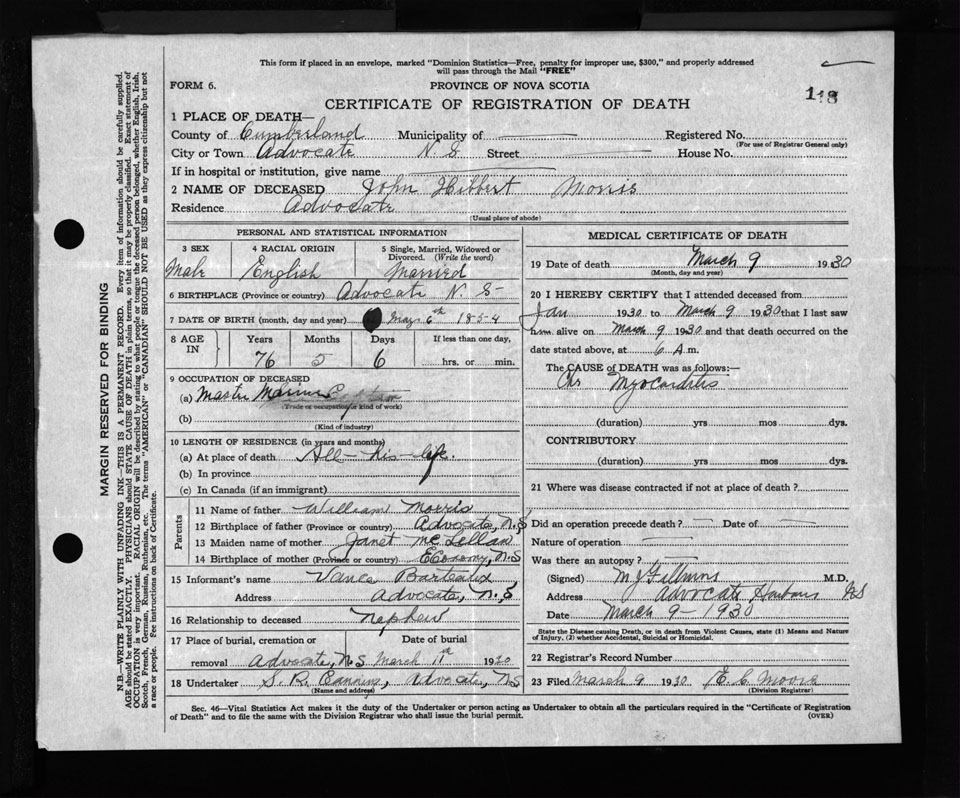 This form if placed in an envelope, marked "Dominion Statistics—Free, penalty for improper use, $300," and properly addressed
will pass through the Mail "FREE"
FORM 6.
PROVINCE OF NOVA SCOTIA
118
CERTIFICATE OF REGISTRATION OF DEATH
1 PLACE OF DEATH—
County of Cumberland Municipality of Registered No.
(For use of Registrar General only)
City or Town Advocate N.S Street House No.
If in hospital or institution, give name
2 NAME OF DECEASED John Hibbert Morris
Residence Advocate
(Usual place of abode)
PERSONAL AND STATISTICAL INFORMATION
3 SEX 4 RACIAL ORIGIN 5 Single, Married, Widowed or Divorced. (Write the word)
Male English Married
6 BIRTHPLACE (Province or country) Advocate N. S
7 DATE OF BIRTH (month, day and year) 6th 1854
8 AGE IN Years Months Days If less than one day,
76 5 6 hrs. or min.
9 OCCUPATION OF DECEASED
(a) Master Mariner
(Trade or occupation or kind of work)
(b)
(Kind of industry)
10 LENGTH OF RESIDENCE (in years and months)
(a) At place of death All - his - life.
(b) In province
(c) In Canada (if an immigrant)
Parents
11 Name of father William Morris
12 Birthplace of father (Province or country) Advocate, N.S
13 Maiden name of mother Janet McLellan
14 Birthplace of mother (Province or country) Economy, N.S
15 Informant's name Vance Barteaux
Address Advocate, N.S
16 Relationship to deceased Nephew
17 Place of burial, cremation or removal Date of burial
Advocate, N.S March 11th 1930
18 Undertaker S. R. Canning, Advocate, N.S
(Name and address)
MEDICAL CERTIFICATE OF DEATH
19 Date of death March 9 1930
(Month, day and year)
20 I HEREBY CERTIFY that I attended deceased from
Jan 1930 to March 9 1930 that I last saw
him alive on March 9 1930 and that death occurred on
date stated above, at 6 A m.
The CAUSE OF DEATH was as follows:—
Chr Myocarditis
(duration) yrs mos dys.
CONTRIBUTORY
(duration) yrs mos dys.
21 Where was disease contracted if not at place of death?
Did an operation precede death? Date of
Nature of operation
Was there an autopsy?
(Signed) M.D.
Address Advocate Harbour NS
Date March 9 - 1930
State the Disease causing Death, or in death from Violent Causes, state (1) Means and Nature
of Injury, (2) whether Accidental, Suicidal or Homicidal.
22 Registrar's Record Number
23 Filed March 9 1930 E. C. Moore
(Division Registrar)
Sec. 46—Vital Statistics Act makes it the duty of the Undertaker or person acting as Undertaker to obtain all the particulars required in the "Certificate of Registration
of Death" and to file the same with the Division Registrar who shall issue the burial permit.
(OVER)
MARGIN RESERVED FOR BINDING
N.B.—WRITE PLAINLY WITH UNFADING INK—THIS IS A PERMANENT RECORD. Every item of information should be carefully supplied.
AGE should be stated EXACTLY. PHYSICIANS should STATE CAUSE OF DEATH in plain terms, so that it may be properly classified. Exact statement of
OCCUPATION is very important. RACIAL ORIGIN will be described by stating to what people or tongue the deceased person belonged, whether English, Irish,
Scotch, French, German, Russian, Ruthenian, etc. The terms "AMERICAN" or "CANADIAN" SHOULD NOT BE USED as they express citizenship but not
a race or people. Fee instructions on back of Certificate.